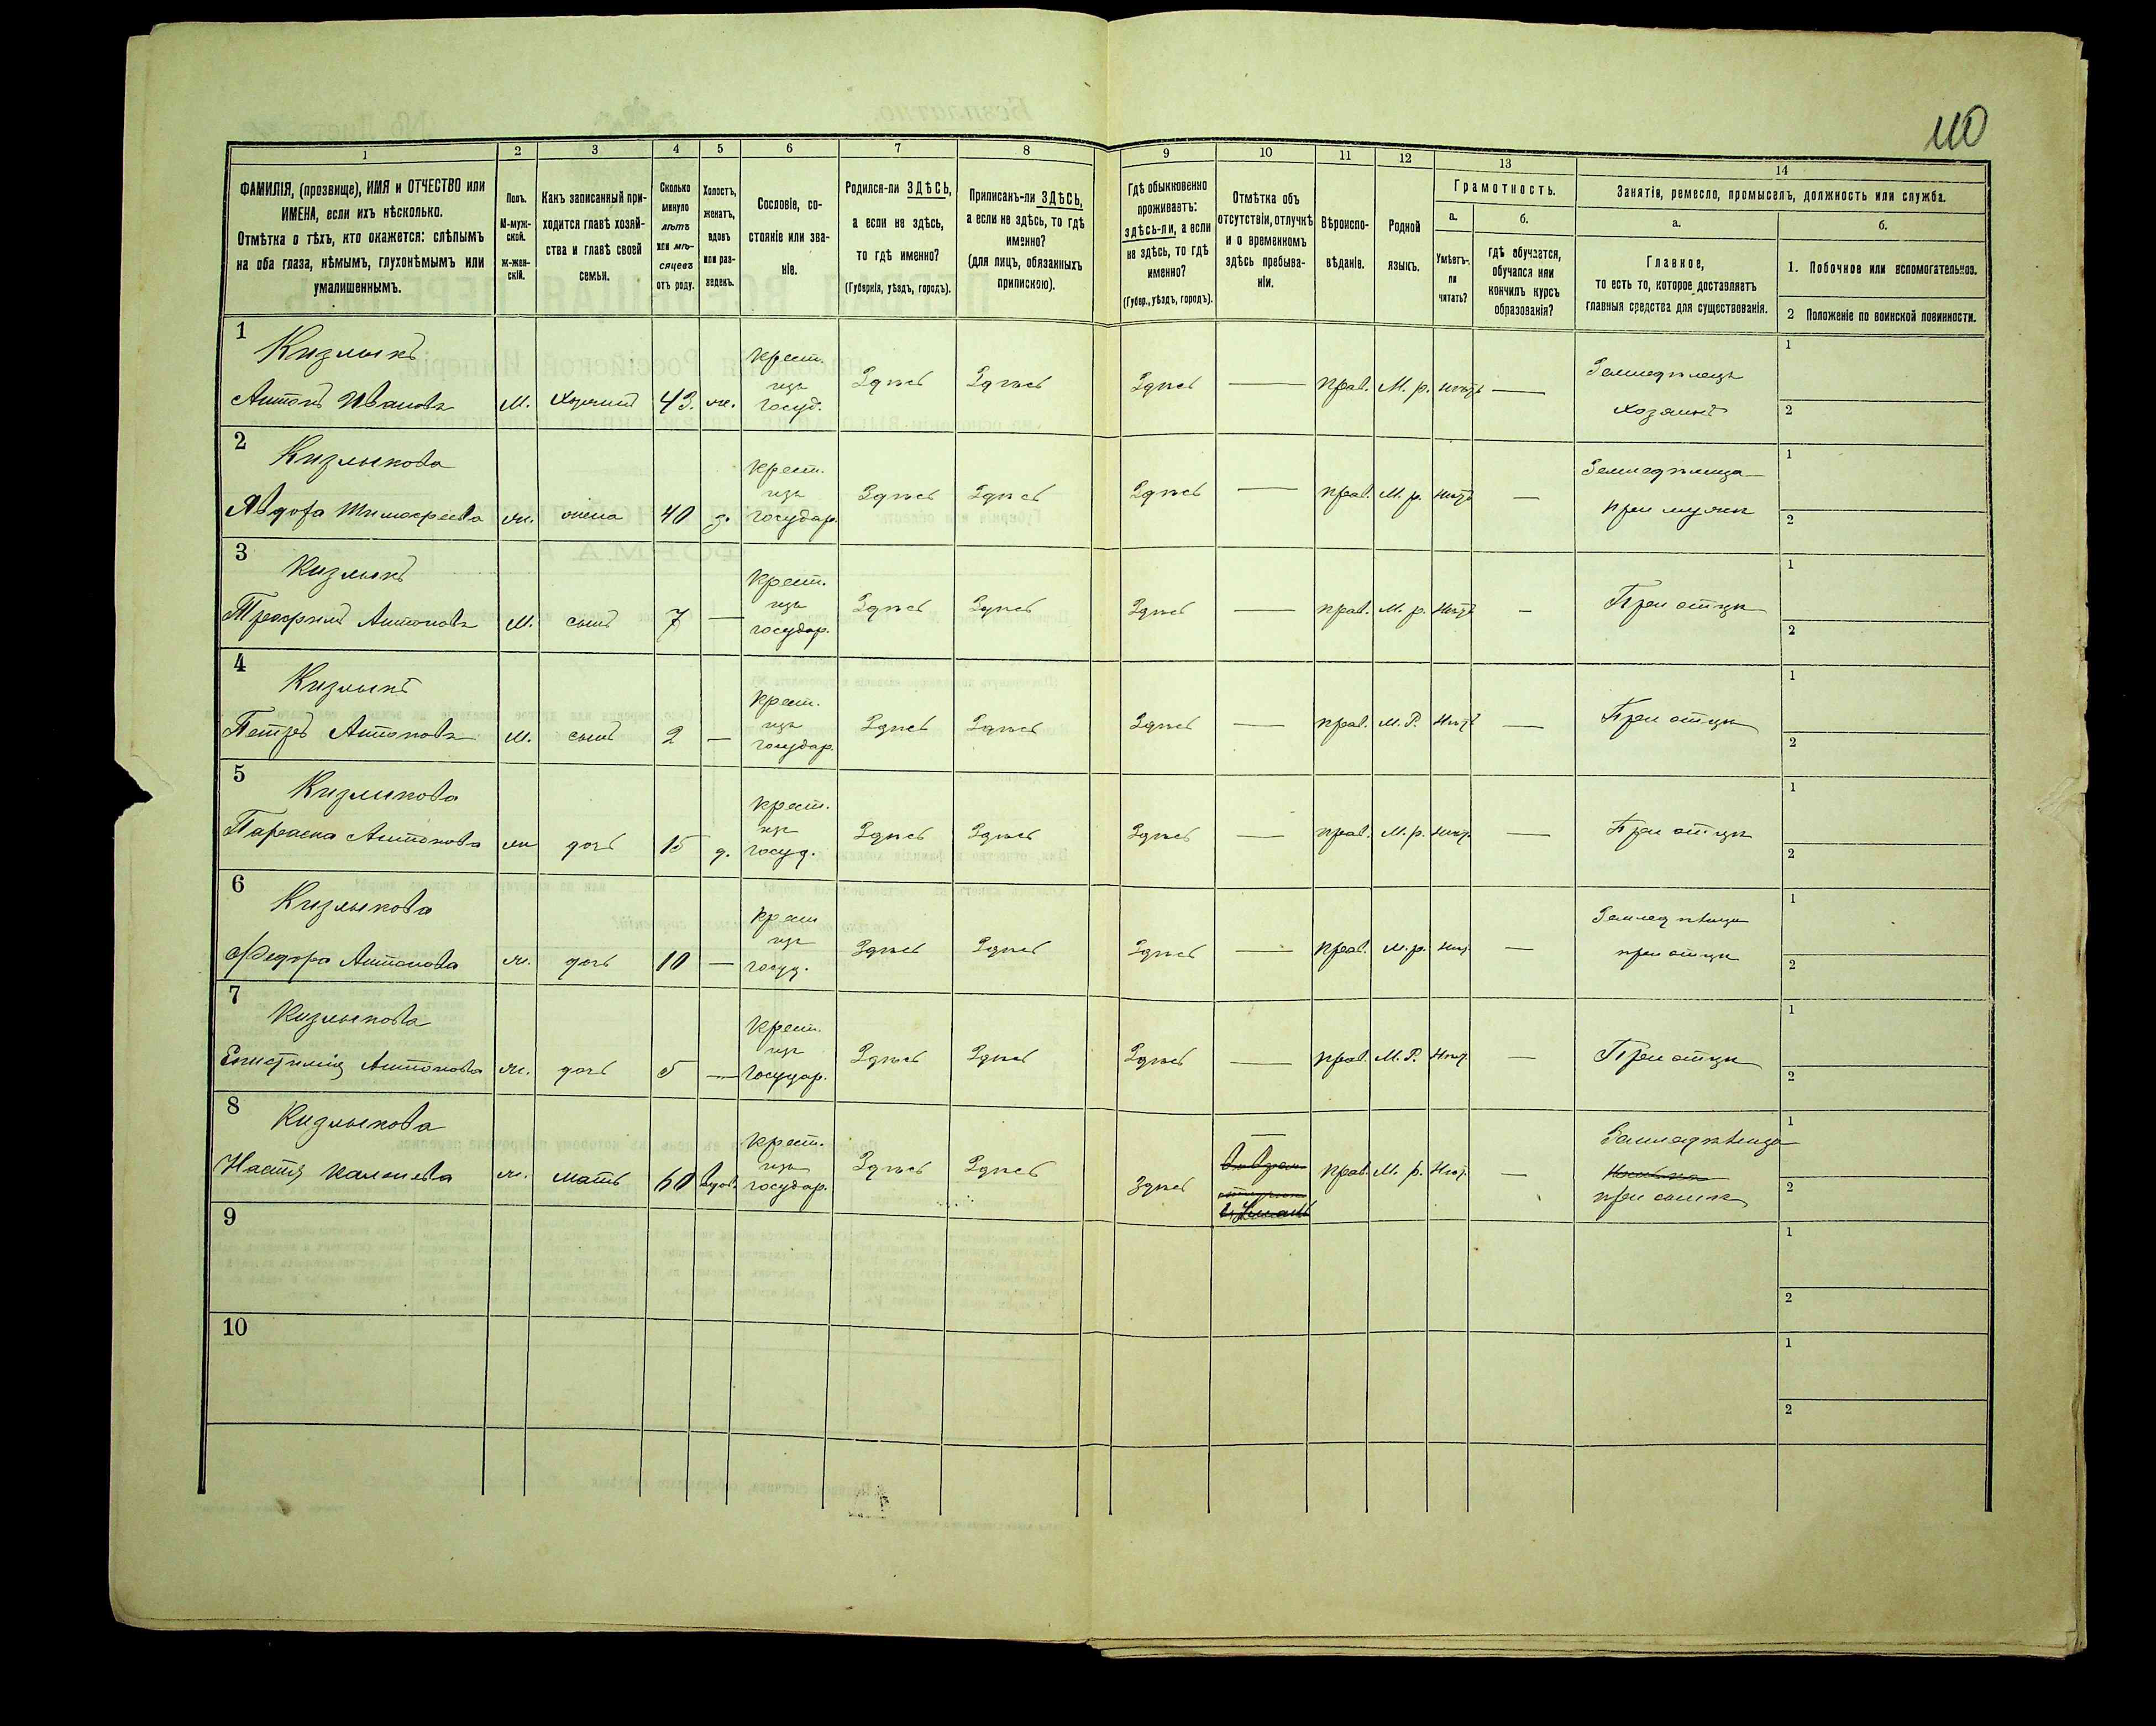 110
1 2 3 4 5 6 7 8 9 10 11 12 13 14
ФАМИЛІЯ, (прозвище), ИМЯ и ОТЧЕСТВО или
ИМЕНА, если ихъ нѣсколько.
Отмѣтка о тѣхъ, кто окажется: слѣпымъ
на оба глаза, нѣмымъ, глухонѣмымъ или
умалишеннымъ.
Полъ.
М-муж-
ской.
ж-жен-
скій.
Какъ записанный при-
ходится главѣ хозяй-
ства и главѣ своей
семьи.
Сколько
минуло
лѣтъ
или мѣ-
сяцевъ
отъ роду.
Холостъ,
женатъ,
вдовъ
или раз-
веденъ.
Сословіе, со-
стояніе или зва-
ніе.
Родился-ли ЗДѢСЬ,
а если не здѣсь,
то гдѣ именно?
(Губернія, уѣздъ, городъ).
Приписанъ-ли ЗДѢСЬ,
а если не здѣсь, то гдѣ
именно?
(для лицъ, обязанныхъ
припискою).
Гдѣ обыкновенно
проживаетъ:
здѣсь-ли, а если
не здѣсь, то гдѣ
именно?
(Губер., уѣздъ, городъ).
Отмѣтка объ
отсутствіи, отлучкѣ
и о временномъ
здѣсь пребыва-
ніи.
Вѣроиспо-
вѣданіе.
Родной
языкъ.
Грамотность.
а.
Умѣетъ-
ли
читать?
б.
гдѣ обучается,
обучался или
кончилъ курсъ
образованія?
Занятія, ремесло, промыселъ, должность или служба.
а.
Главное,
то есть то, которое доставляетъ
главныя средства для существованія.
б.
1. Побочное или вспомогательное.
2 Положеніе по воинской повинности.
1
Кизлыкъ
Антонъ Ивановъ М. хозяинъ 43. же.
Крест.
изъ
госуд.
Здѣсь Здѣсь Здѣсь — прав. М. р. нѣтъ —
Земледѣлецъ
хозяинъ
1
2
2
Кизлыкова
Явдоха Тимофеева ж. жена 40 з.
Крест.
изъ
государ.
Здѣсь Здѣсь Здѣсь — прав. М. р. нѣтъ —
Земледѣлица
при мужѣ
1
2
3
Кизлыкъ
Трофимъ Антоновъ М. сынъ 7 —
Крест.
изъ
государ.
Здѣсь Здѣсь Здѣсь — прав. М. р. нѣтъ —
При отцѣ
1
2
4
Кизлыкъ
Петръ Антоновъ М. сынъ 2 —
Крест.
изъ
государ.
Здѣсь Здѣсь Здѣсь — прав. М. Р. нѣтъ —
При отцѣ
1
2
5
Кизлыкова
Параска Антонова ж дочь 15 д.
Крест.
изъ
госуд.
Здѣсь Здѣсь Здѣсь — прав. М. р. нѣт. —
При отцѣ
1
2
6
Кизлыкова
Федора Антонова ж. дочь 10 —
Крест
изъ
госуд.
Здѣсь Здѣсь Здѣсь — прав. М. р. нѣт. —
Земледѣлица
при отцѣ
1
2
7
Кизлыкова
Антонова ж. дочь 5 —
Крест.
изъ
государ.
Здѣсь Здѣсь Здѣсь — прав. М. Р. нѣт. —
При отцѣ
1
2
8
Кизлыкова
Настя ж. мать 60 вдов.
Крест.
изъ
государ.
Здѣсь Здѣсь Здѣсь — прав. М. р. нѣт. —
Земледѣлица
при сынѣ
1
2
9
1
2
10
1
2